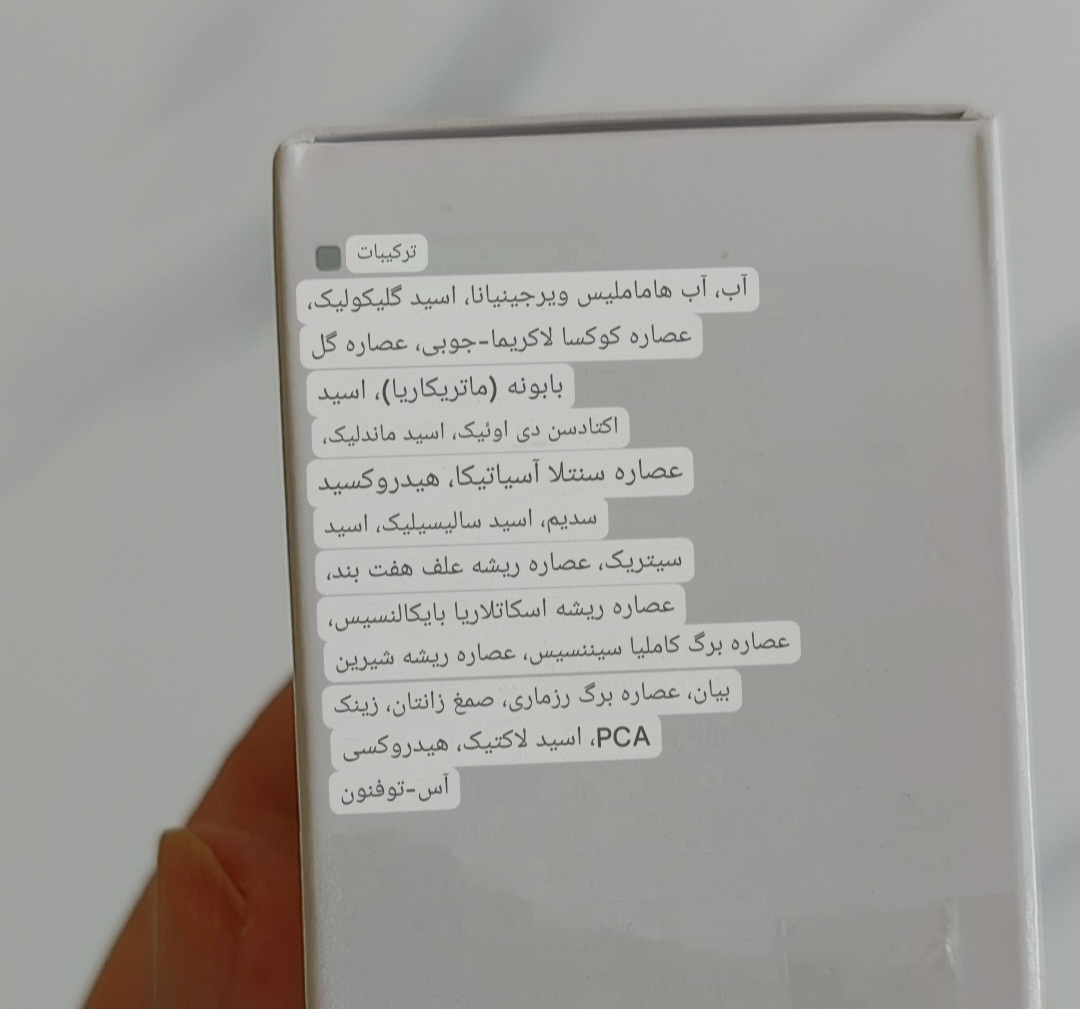 ترکیبات
آب، آب هاماملیس ویرجینیانا، اسید گلیکولیک،
عصاره کوکسا لاکریما-جوبی، عصاره گل
بابونه (ماتریکاریا)، اسید
اکتادسن دی اوئیک، اسید ماندلیک،
عصاره سنتلا آسیاتیکا، هیدروکسید
سدیم، اسید سالیسیلیک، اسید
سیتریک، عصاره ریشه علف هفت بند،
عصاره ریشه اسکاتلاریا بایکالنسیس،
عصاره برگ کاملیا سیننسیس، عصاره ریشه شیرین
بیان، عصاره برگ رزماری، صمغ زانتان، زینک
PCA، اسید لاکتیک، هیدروکسی
آس-توفنون